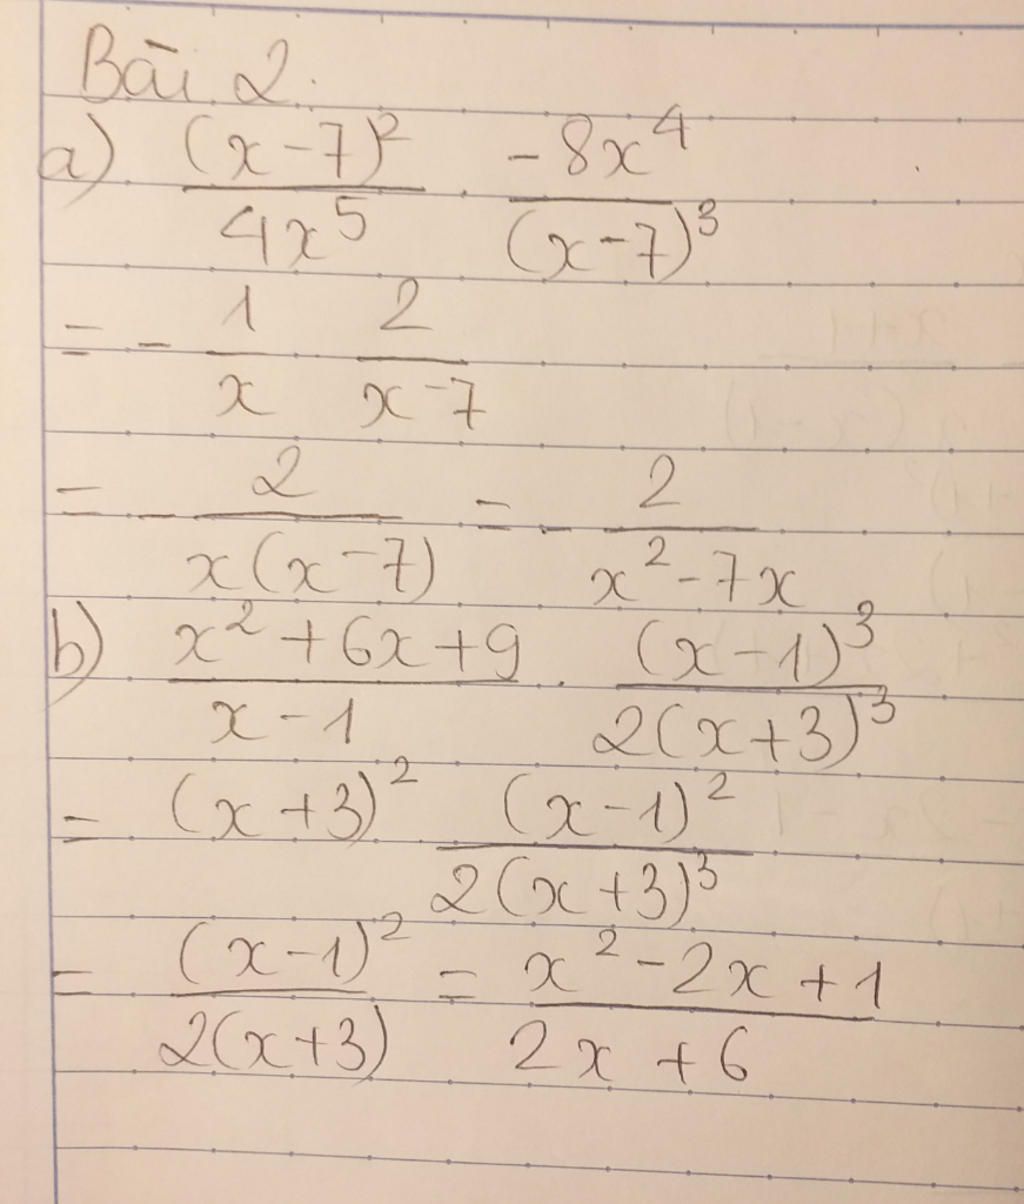 Bài 2.
a) (x-7)²/4x⁵ . -8x⁴/(x-7)³
= - 1/x . 2/x-7
= - 2/x(x-7) = - 2/x²-7x
b) x²+6x+9/x-1 . (x-1)³/2(x+3)³
= (x+3)² . (x-1)²/2(x+3)³
= (x-1)²/2(x+3) = x²-2x+1/2x+6